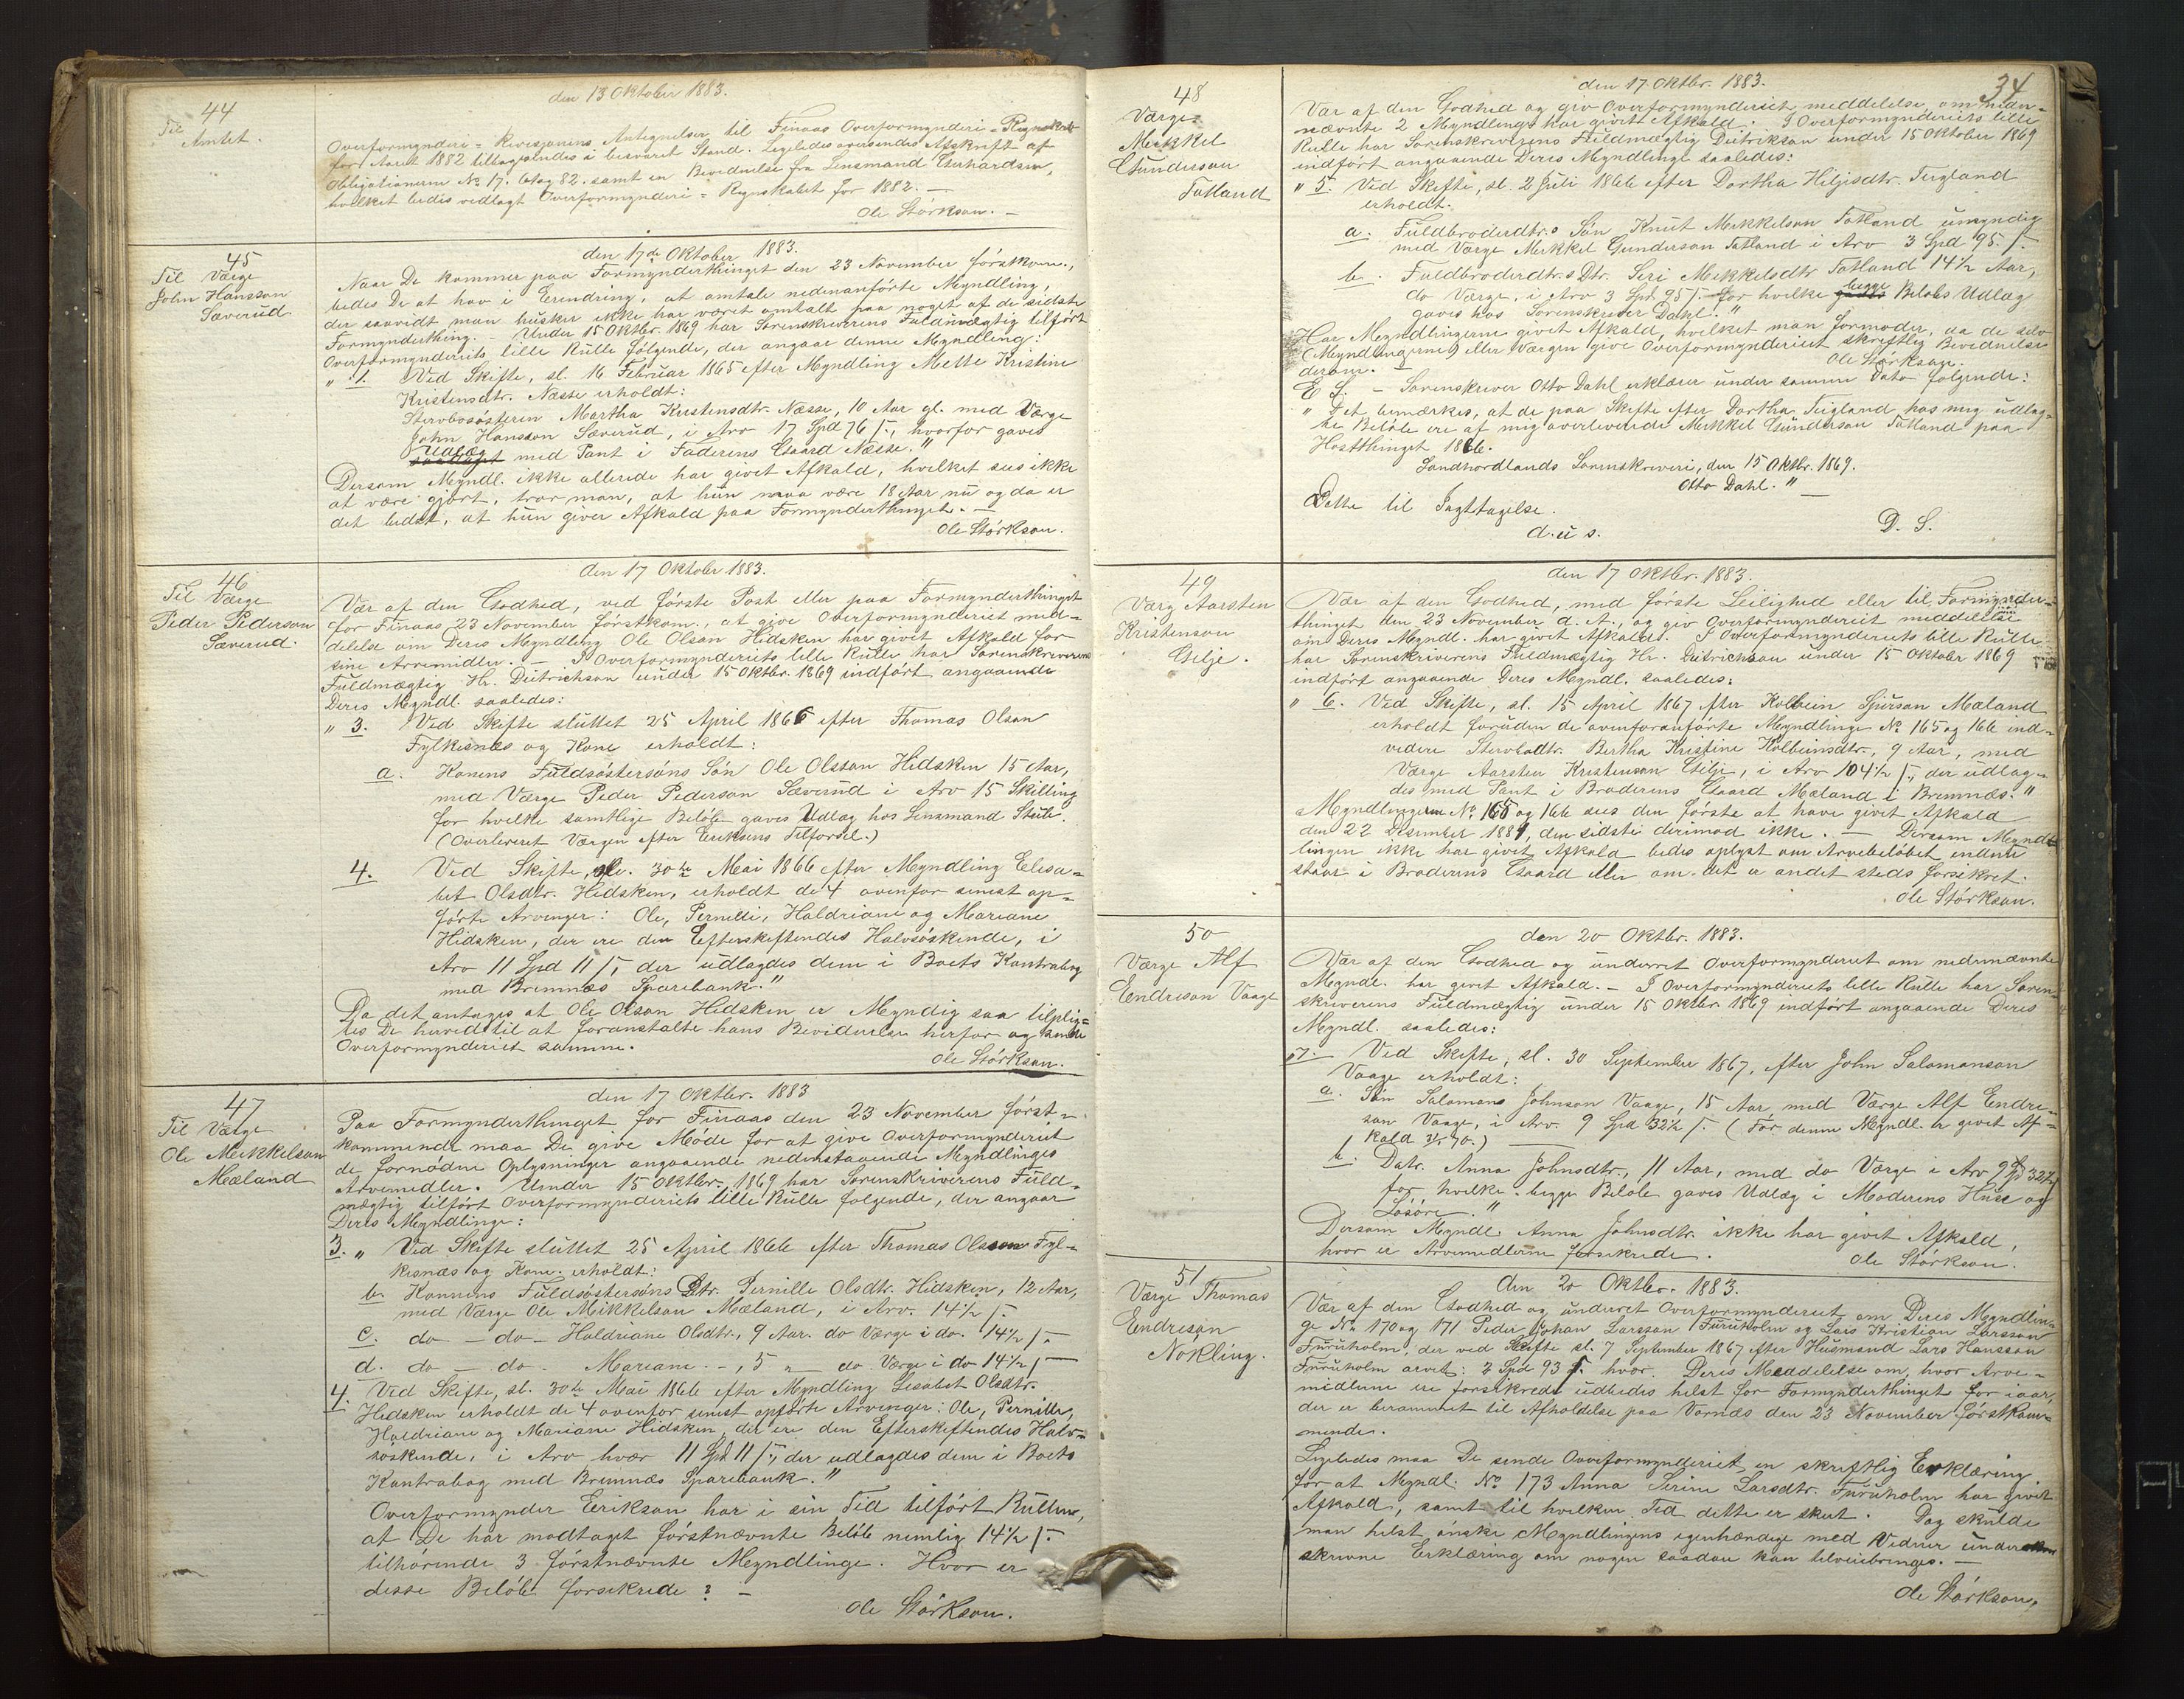 44
Til
Amtet.
den 13 Oktober 1883.
Overformynderi-Revisjonens Antegnelser til Finaas Overformynderi-Regnskab
for Aaret 1882 tilbagesendes i besvaret Stand. Ligeledes oversendes Afskrift af
Obligationerne No 17. 61 og 82. samt en Bevidnelse fra Lensmand Gerhardsen,
hvilket bedes vedlagt Overformynderi-Regnskabet for 1882. —
Ole Størkson. —
45
Til Værge
John Hansson
Sæverud.
den 17de Oktober 1883.
Naar De kommer paa Formynderthinget den 23 November førstkom.,
bedes De at hav i Erendring, at omtale nedenanførte Myndling,
der saavidt man husker ikke har været omtalt paa noget af de sidste
Formynderthing. — Under 15 Oktbr. 1869 har Sorenskriverens Fuldmægtig tilført
Overformynderiets lille Rulle følgende, der angaar denne Myndling:
" 1. Ved Skifte, sl. 16 Februar 1865 efter Myndling Mette Kristine
Kristensdtr. Næsse erholdt:
Stervbosøsteren Martha Kristensdtr. Næsse, 10 Aar gl. med Værge
John Hansson Sæverud, i Arv 17 Spd 76 ß, hvorfor gaves
Udlæg med Pant i Faderens Gaard Næsse."
Dersom Myndl. ikke allerede har givet Afkald, hvilket sees ikke
at være gjort, tror man, at hun maa være 18 Aar nu og da er
det bedst, at hun giver Afkald paa Formynderthinget. —
Ole Størkson.
46
Til Værge
Peder Pederson
Sæverud.
den 17 Oktober 1883.
Vær af den Godhed, ved første Post eller paa Formynderthinget
for Finaas 23 November førstkom., at give Overformynderiet med-
delelse om Deres Myndling Ole Olson Hidsken har givet Afkald for
sine Arvemidler. — I Overformynderiets lille Rulle har Sorenskriverens
Fuldmægtig Hr. Deitrichson under 15 Oktbr. 1869 indført angaaende
Deres Myndl. saaledes:
" 3. Ved Skifte sluttet 25 April 1866 efter Thomas Olson
Fylkesnæs og Kone erholdt:
a. Konens Fuldsøstersøns Søn Ole Olsson Hidsken 15 Aar,
med Værge Peder Pederson Sæverud i Arv 15 Skilling
for hvilke samtlige Beløb gaves Udlæg hos Lensmand Stub.
(Overleveret Værgen efter Eriksens Tilførsel.)
4. Ved Skifte, sl. 30te Mai 1866 efter Myndling Elisa-
bet Olsdtr. Hidsken, erholdt de 4 ovenfor senest op-
førte Arvinger: Ole, Pernille, Haldriane og Mariane
Hidsken, der ere den Efterskiftendes Halvsøskende, i
Arv 11 Spd 11 ß, der udlagdes dem i Boets Kontrabog
med Bremnæs Sparebank."
Da det antages at Ole Olson Hidsken er Myndig saa tilplig-
tes De herved til at foranstalte hans Bevidnelse herfor og sende
Overformynderiet samme.
Ole Størkson.
47
Til Værge
Ole Mekkelson
Mæland
den 17 Oktbr. 1883
Paa Formynderthinget for Finaas den 23 November først-
kommende maa De give Møde for at give Overformynderiet
de fornødne Oplysninger angaaende nedenstaaende Myndlinges
Arvemedler. Under 15 Oktbr. 1869 har Sorenskriverens Fuld-
mægtig tilført Overformynderiets lille Rulle følgende, der angaar
Deres Myndlinge:
3. " Ved Skifte sluttet 25 April 1866 efter Thomas Olsson Fyl-
kesnæs og Kone erholdt:
b. Konnens Fuldsøstersøns Dtr. Pernille Olsdtr. Hidsken, 12 Aar,
med Værge Ole Mikkelson Mæland, i Arv. 14½ ß.
c. do — do — Haldriane Olsdtr., 9 Aar. do Værge i do. 14½ ß.
d. do — do — Mariane. — , 5 „ do Værge i do 14½ ß
4. Ved Skifte, sl. 30te Mai 1866 efter Myndling Lesabet Olsdtr.
Hidsken erholdt de 4 ovenfor senest opførte Arvenger: Ole, Pernille,
Haldriane og Mariane Hidsken, der ere den Efterskiftendes Halv-
søskende, i Arv hvær 11 Spd 11 ß, der udlagdes dem i Boets
Kontrabog med Bremnæs Sparebank."
Overformynder Eerikson har i sin Tid tilført Rullen,
at De har modtaget førstnævnte Beløb nemlig 14½ ß.
tilhørende 3 førstnævnte Myndlinge. Hvor er
disse Beløb forsikrede? —
Ole Størkson.
34
48
Værge
Mekkel
Gunderson
Tatland
den 17 Oktbr. 1883.
Vær af den Godhed og giv Overformynderiet meddelelse, om neden-
nævnte 2 Myndlinge har givet Afkald. I Overformynderiets lille
Rulle har Sorenskriverens Fuldmægtig Dietrikson under 15 Oktober 1869
indført angaaende Deres Myndlinge saaledes:
" 5. Ved Skifte, sl. 2 Juli 1866 efter Dortha Hiljesdtr. Teigland
erholdt.
a. Fuldbroderdtrs Søn Knut Mekkelson Tatland umyndig
med Værge Mekkel Gunderson Tatland i Arv 3 Spd 95 ß.
b. Fuldbroderdtr.s Dtr. Seri Mekkelsdtr Tatland 14½ Aar,
do Værge, i Arv 3 Spd 95 ß. for hvilke begge Beløbs Udlæg
gaves hos Sorenskriver Dahl."
Har Myndlingerne givet Afkald, hvilket man formoder, da de selv
(Myndlingerne) eller Værgen give Overformynderiet skriftlig Bevidnelse
derom. —
Ole Størkson.
E S. — Sorenskriver Otto Dahl erklærer under samme Dato følgende:
" Det bemærkes, at de paa Skifte efter Dortha Teigland hos mig udlag-
te Beløb ere af mig overleverede Mekkel Gunderson Tatland paa
Høstthinget 1866.
Søndhordlands Sorenskriveri, den 15 Oktbr. 1869.
Otto Dahl." —
Dette til Iagttagelse.
d. u s.
D. S.
49
Værg Aarsten
Kristenson
Gilje.
den 17 Oktbr. 1883.
Vær af den Godhed, med første Leilighed eller til Formynder-
thinget den 23 November d. A., og giv Overformynderiet middelelse
om Deres Myndl. har givet Afkald. I Overformynderiets lille Rulle
har Sorenskriverens Fuldmægtig Hr. Deitrichson under 15 Oktober 1869
indført angaaende Deres Myndl. saaledes:
" 6. Ved Skifte, sl. 15 April 1867 efter Kolbein Sjurson Mæland
erholdt foruden de ovenforanførte Myndlinge No 165 og 166 end-
videre Stervbodtr. Bertha Kristine Kolbeinsdtr., 9 Aar, med
Værge Aarsten Kristenson Gilje, i Arv 104½ ß, der udlag-
des med Pant i Broderens Gaard Mæland i Bremnæs."
Myndlingerne No 165 og 166 sees den første at have givet Afkald
den 22 Desember 1881, den sidste derimod ikke. — Dersom Mynd-
lingen ikke har givet Afkald bedes oplyst om Arvebeløbet endnu
staar i Broderens Gaard eller om det er andet steds forsikret.
Ole Størkson.
50
Værge Alf
Endreson Vaage
den 20 Oktbr. 1883.
Vær af den Godhed og underret Overformynderiet om nedennævnte
Myndl. har givet Afkald. — I Overformynderiets lille Rulle har Soren-
skriverens Fuldmægtig under 15 Oktbr. 1869 indført angaaende Deres
Myndl. saaledes:
"7. — Ved Skifte, sl. 30 September 1867, efter John Salomonson
Vaage erholdt:
a. Søn Salomons Johnson Vaage, 15 Aar, med Værge Alf Endre-
son Vaage, i Arv. 9 Spd 32½ ß. (For denne Myndl. er givet Af-
kald 3/5 70.)
b. Datr. Anna Johnsdtr., 11 Aar, med do Værge i Arv 9 Spd 32½
for hvilke begge Beløb gaves Udlæg i Moderens Huse og
Løsøre."
Dersom Myndl. Anna Johnsdtr. ikke har givet Afkald,
hvor er Arvemidlerne forsikrede.
Ole Størkson.
51
Værge Thomas
Endreson
Nokling.
den 20 Oktbr. 1883.
Vær af den Godhed og underret Overformynderiet om Deres Myndlin-
ge No 170 og 171 Peder Johan Larsson Furuholm og Lars Kristian Larsson
Furuholm, der ved Skifte sl. 7 September 1867 efter Husmand Lars Hansson
Furuholm arvet: 2 Spd 93 ß. hvor. Deres Meddelelse om, hvor Arve-
midlerne ere forsikrede udbedes helst for Formynderthinget for iaar,
der er berammet til Afholdelse paa Vornæs den 23 November førstkom-
mende.
Ligeledes maa De sende Overformynderiet en skriftlig Erklæring
for at Myndl. No 173 Anna Serine Larsdtr. Furuholm har givet
Afkald, samt til hvilken Tid dette er skeet. Dog skulde
man helst ønske Myndlingens egenhændige med Vidner under
skrevne Erklæring om nogen saadan kan tilveiebringes. —
Ole Størkson.